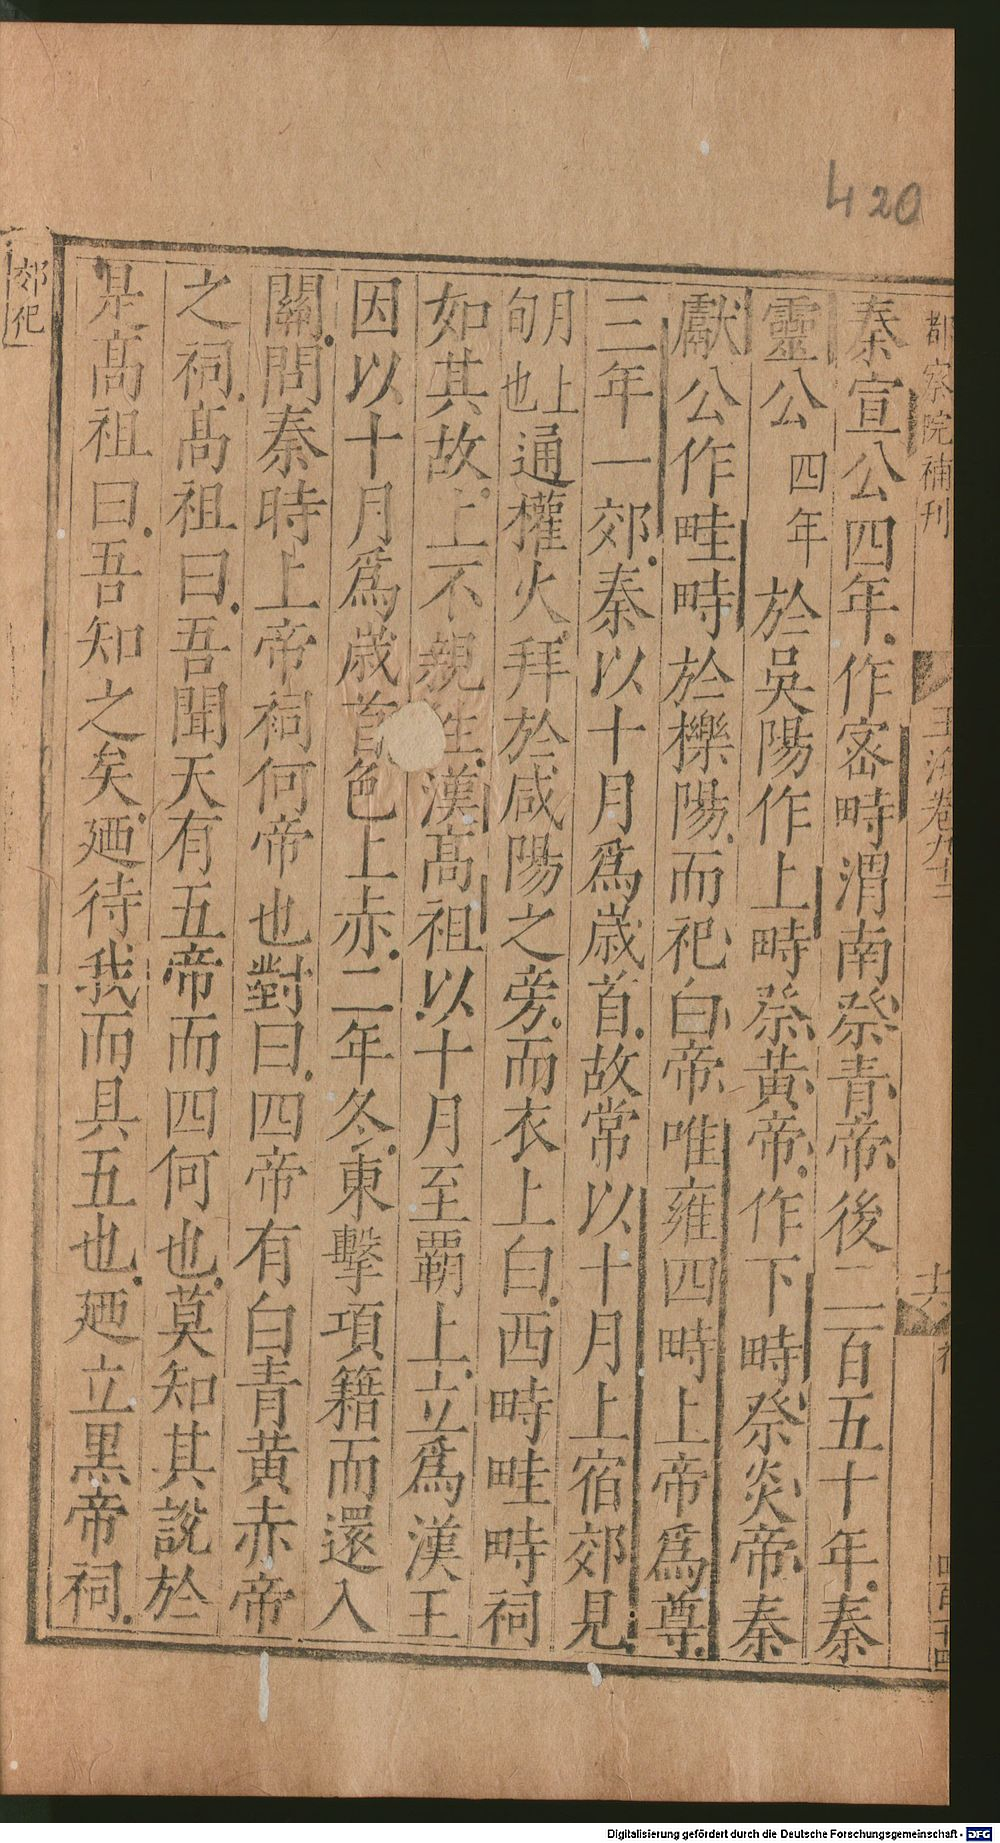 420
都察院補刊
玉海卷九十二
秦宣公四年作密畤渭南祭青帝後二百五十年秦
靈公四年於吳陽作上畤祭黃帝作下畤祭炎帝秦
獻公作畦畤於櫟陽而祀白帝唯雍四畤上帝爲尊
三年一郊秦以十月爲歲首故常以十月上宿郊見
月上旬也通權火拜於咸陽之旁而衣上白西畤畦畤祠
如其故上不親往漢高祖以十月至覇上立爲漢王
因以十月爲歲首色上赤二年冬東擊項籍而還入
關問秦時上帝祠何帝也對曰四帝有白青黃赤帝
之祠高祖曰吾聞天有五帝而四何也莫知其說於
是高祖曰吾知之矣廼待我而具五也廼立黑帝祠
郊祀
Digitalisierung gefördert durch die Deutsche Forschungsgemeinschaft - DFG